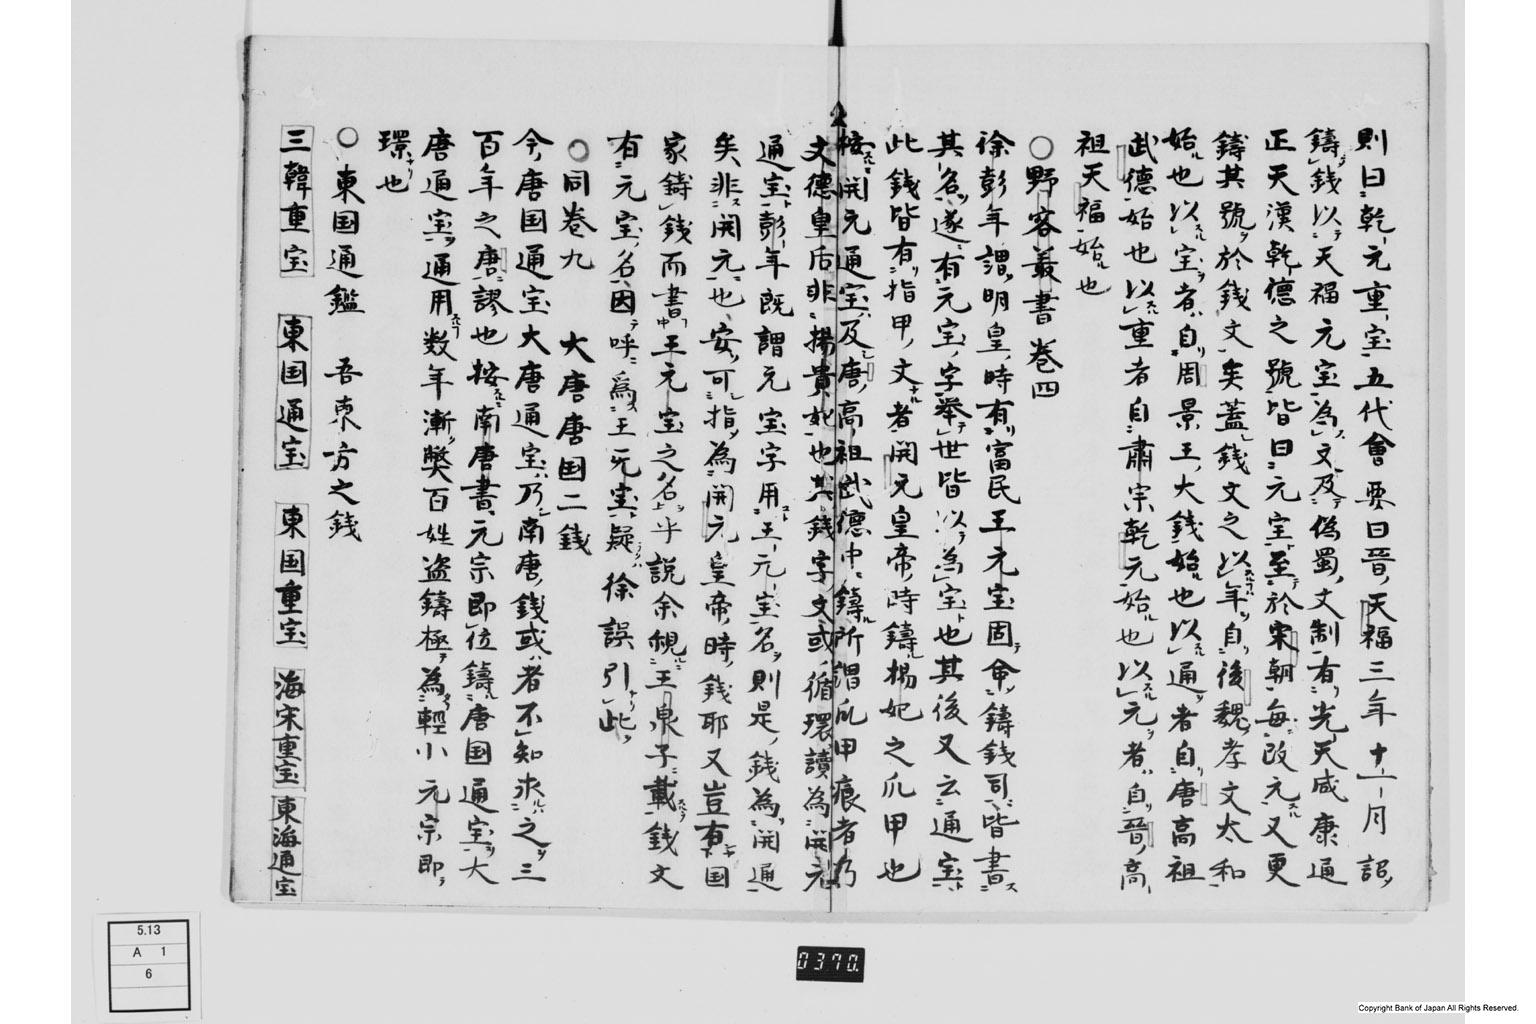 則曰乾元重宝五代會要曰晉天福三年十一月詔
鑄錢以天福元宝為文及偽蜀文制有光天咸康通
正天漢乾德之號皆曰元宝至於宋朝每改元又更
鑄其號於錢文矣蓋錢文之以年自後魏孝文太和
始也以宝者自周景王大錢始也以通者自唐高祖
武德始也以重者自肅宗乾元始也以元者自晉高
祖天福始也
○野客叢書巻四
徐彭年謂明皇時有富民王元宝固命鑄錢司皆書
其名遂有元宝字挙世皆以為宝也其後又云通宝
此錢皆有指甲文者開元皇帝時鑄楊妃之爪甲也
按開元通宝及唐高祖武德中鑄所謂爪甲痕者乃
文德皇后非楊貴妃也其錢字文或循環讀為開元
通宝彭年既謂元宝字用王元宝名則是錢為開通
矣非開元也安可指為開元皇帝時錢耶又豈有国
家鑄錢而書王元宝之名乎説余覩王泉子載錢文
有元宝名因呼為王元宝疑徐誤引此
○同巻九　大唐唐国二錢
今唐国通宝大唐通宝乃南唐錢或者不知求之三
百年之唐謬也按南唐書元宗即位鑄唐国通宝大
唐通宝通用数年漸獘百姓盗鑄極為輕小元宗即
璟也
○東国通鑑　吾東方之錢
三韓重宝　東国通宝　東国重宝　海宋重宝　東海通宝
5.13
A 1
6
0370.
Copyright Bank of Japan All Rights Reserved.